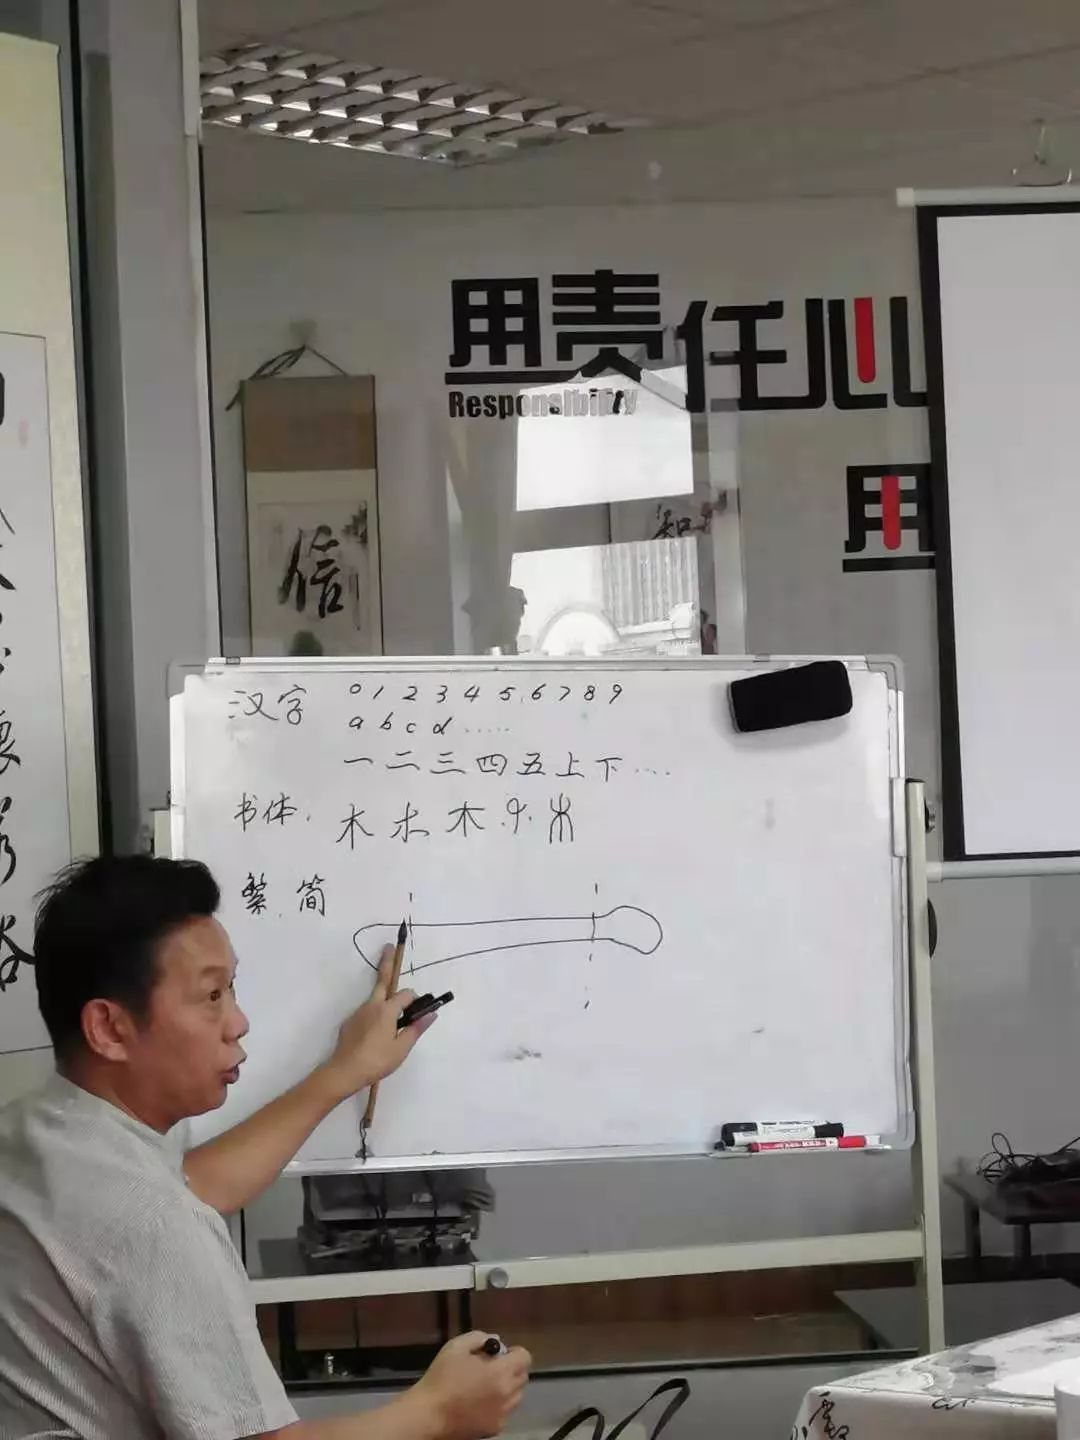 用责任心
Responsibility
用
信
和
汉字 0 1 2 3 4 5 6 7 8 9
a b c d ......
一 二 三 四 五 上 下 ....
书体. 木 木 木 木 木
繁. 简